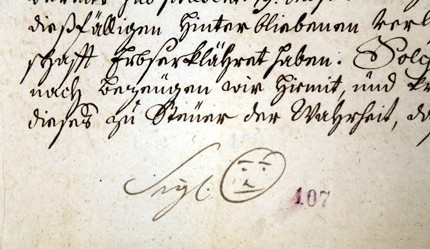 diesfälligen Hinterbliebenen
schafft Erbserkläret haben. Solch
nach bezeugen wir hiemit, und
dieses zu Steuer der Wahrheit, da
Sigl.
107